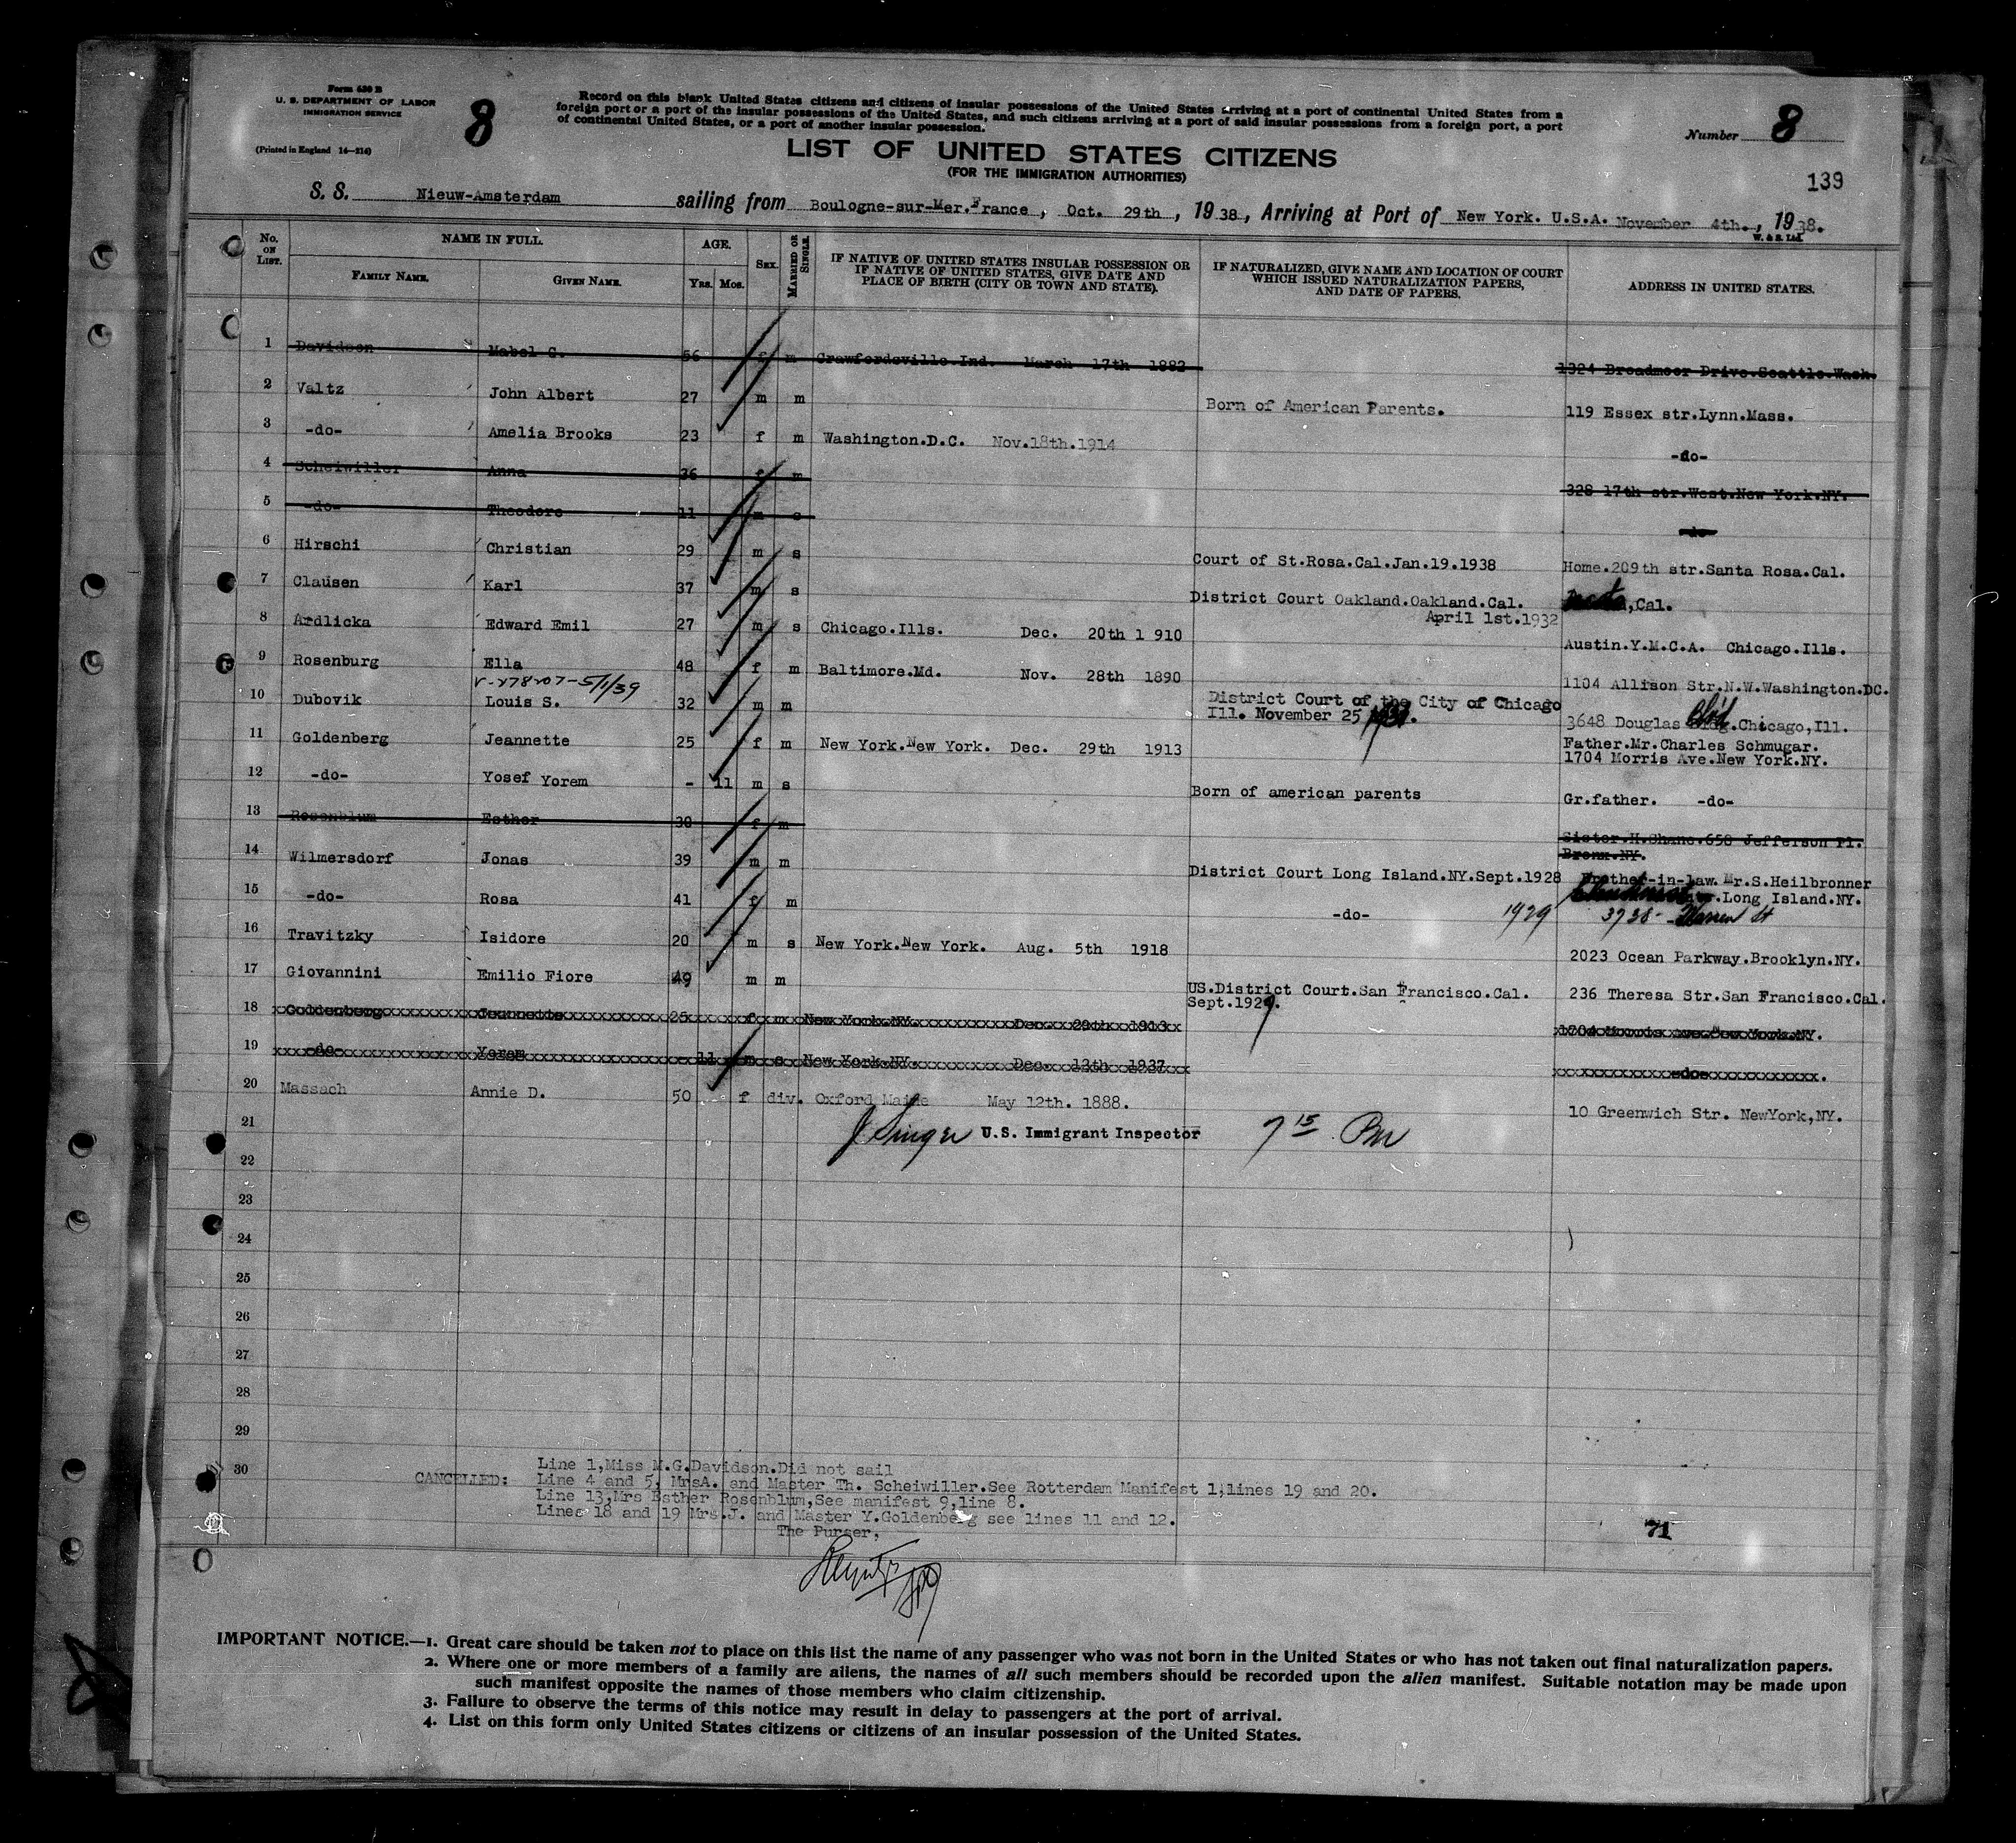 Form 630 B
U. S. DEPARTMENT OF LABOR
IMMIGRATION SERVICE
(Printed in England 14—214)
8
Record on this blank United States citizens and citizens of insular possessions of the United States arriving at a port of continental United States from a
foreign port or a port of the insular possessions of the United States, and such citizens arriving at a port of said insular possessions from a foreign port, a port
of continental United States, or a port of another insular possession.
Number 8
LIST OF UNITED STATES CITIZENS
(FOR THE IMMIGRATION AUTHORITIES)
139
S. S. Nieuw-Amsterdam sailing from Boulogne-sur-Mer.France, Oct. 29th, 1938, Arriving at Port of New York. U.S.A. November 4th., 1938.
W. & S. Ltd.
No. ON LIST. NAME IN FULL. AGE. SEX. MARRIED OR SINGLE. IF NATIVE OF UNITED STATES INSULAR POSSESSION OR IF NATIVE OF UNITED STATES, GIVE DATE AND PLACE OF BIRTH (CITY OR TOWN AND STATE). IF NATURALIZED, GIVE NAME AND LOCATION OF COURT WHICH ISSUED NATURALIZATION PAPERS, AND DATE OF PAPERS. ADDRESS IN UNITED STATES.
FAMILY NAME. GIVEN NAME. Yrs. Mos.
1 Davidson Mabel G. 56 f m Crawfordsville Ind. March 17th 1882 1324 Broadmoor Drive.Seattle.Wash.
2 Valtz John Albert 27 m m Born of American Parents. 119 Essex str.Lynn.Mass.
3 -do- Amelia Brooks 23 f m Washington.D.C. Nov.18th.1914 -do-
4 Scheiwiller Anna 36 f m 328 17th str.West.New York.NY.
5 -do- Theodore 11 m s -do-
6 Hirschi Christian 29 m s Court of St.Rosa.Cal.Jan.19.1938 Home.209th str.Santa Rosa.Cal.
7 Clausen Karl 37 m s District Court Oakland.Oakland.Cal. April 1st.1932 ,Cal.
8 Ardlicka Edward Emil 27 m s Chicago.Ills. Dec. 20th 1 910 Austin.Y.M.C.A. Chicago.Ills.
9 Rosenburg Ella 48 f m Baltimore.Md. Nov. 28th 1890 1104 Allison Str.N.W.Washington.DC.
5/1/39
10 Dubovik Louis S. 32 m m District Court of the City of Chicago Ill. November 25 3648 Douglas Chicago,Ill.
11 Goldenberg Jeannette 25 f m New York.New York. Dec. 29th 1913 Father.Mr.Charles Schmugar. 1704 Morris Ave.New York.NY.
12 -do- Yosef Yorem - 11 m s Born of american parents Gr.father. -do-
13 Rosenblum Esther 30 f m Sister.H.Shane.658 Jefferson Pl. Bronx.NY.
14 Wilmersdorf Jonas 39 m m District Court Long Island.NY.Sept.1928 Brother-in-law.Mr.S.Heilbronner
.Long Island.NY.
15 -do- Rosa 41 f m -do- 1929 3738- Warren St
16 Travitzky Isidore 20 m s New York.New York. Aug. 5th 1918 2023 Ocean Parkway.Brooklyn.NY.
17 Giovannini Emilio Fiore 49 m m US.District Court.San Francisco.Cal. Sept.1929. 236 Theresa Str.San Francisco.Cal.
18 Goldenberg Jeannette 25 f m New York.NY. Dec. 29th 1913 1704 Morris Ave.New York.NY.
19 -do- Yorem - 11 m s New York.NY. Dec. 13th 1937 -do-
20 Massach Annie D. 50 f div. Oxford Maine May 12th. 1888. 10 Greenwich Str. NewYork,NY.
21 J Singer U.S. Immigrant Inspector 7 15 PM
22
23
24
25
26
27
28
29
30
Line 1,Miss M.G.Davidson.Did not sail
CANCELLED: Line 4 and 5, MrsA. and Master Th. Scheiwiller.See Rotterdam Manifest 1,lines 19 and 20.
Line 13,Mrs Esther Rosenblum,See manifest 9,line 8.
Lines 18 and 19 Mrs.J. and Master Y.Goldenberg see lines 11 and 12.
The Purser,
71
IMPORTANT NOTICE.—1. Great care should be taken not to place on this list the name of any passenger who was not born in the United States or who has not taken out final naturalization papers.
2. Where one or more members of a family are aliens, the names of all such members should be recorded upon the alien manifest. Suitable notation may be made upon
such manifest opposite the names of those members who claim citizenship.
3. Failure to observe the terms of this notice may result in delay to passengers at the port of arrival.
4. List on this form only United States citizens or citizens of an insular possession of the United States.